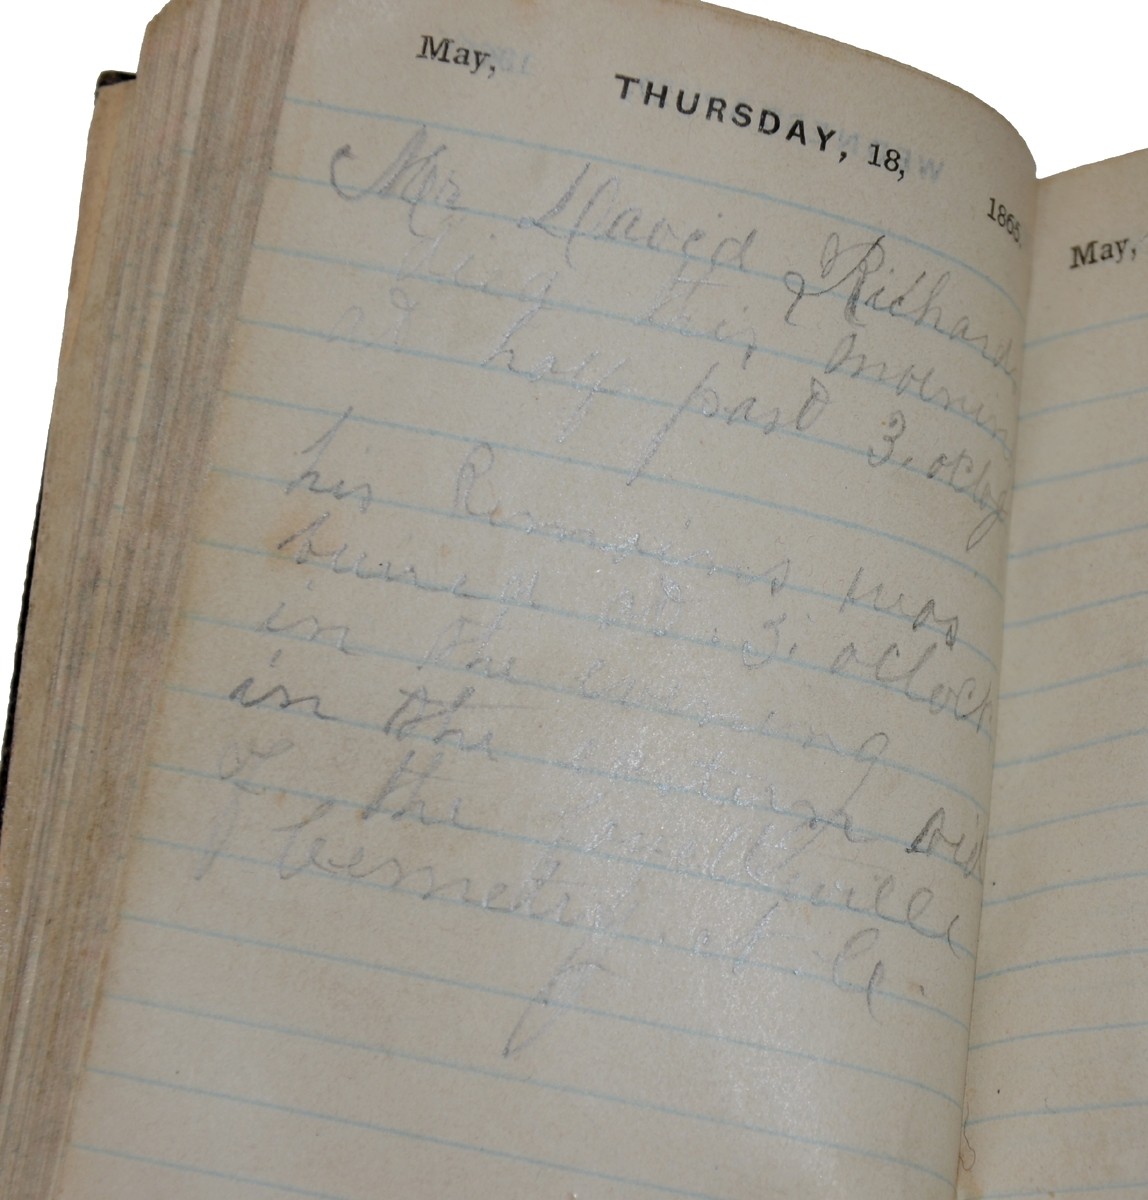 May, THURSDAY, 18, 1865.
Mr David Richards
this morning
at half past 3, oclock
his Remains was
buried at 3, oclock
in the evening
in the
of the
Cemetry at
May,